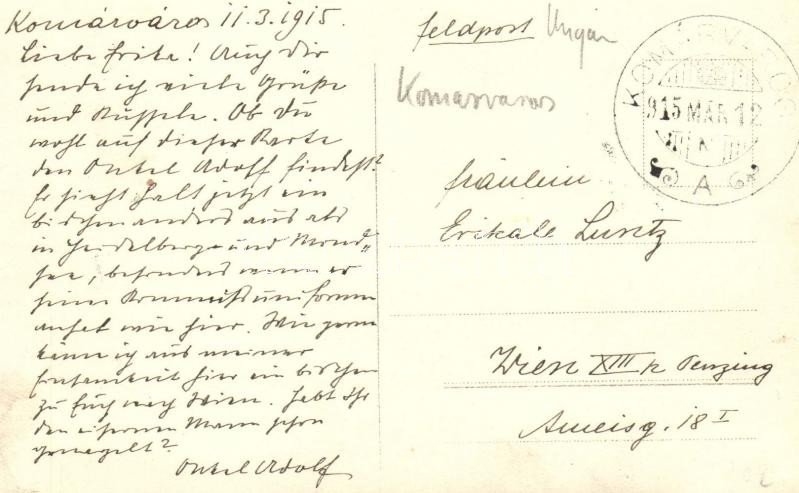 Komárváros 11.3.1915.
Liebe Erika! Auch dir
sende ich viele Grüße
und Küsse. Ob du
wohl auf dieser Karte
den Onkel Adolf findest?
Er sieht halt jetzt ein
bischen anders aus als
in Heidelberg und Mond„
see, besonders wenn er
seine Kommißuniform
anhat wie hier. Wie gerne
käme ich aus meiner
Einsamkeit hier ein bischen
zu Euch nach Wien. Habt Ihr
den eisernen Mann schon
genagelt?
Onkel Adolf
Feldpost Ungarn
Komarvaros
KOMÁRVÁROS
915 MÁR 12
N
A
Fräulein
Erikale
Wien XIII/2 Penzing
Ameisg. 18 I